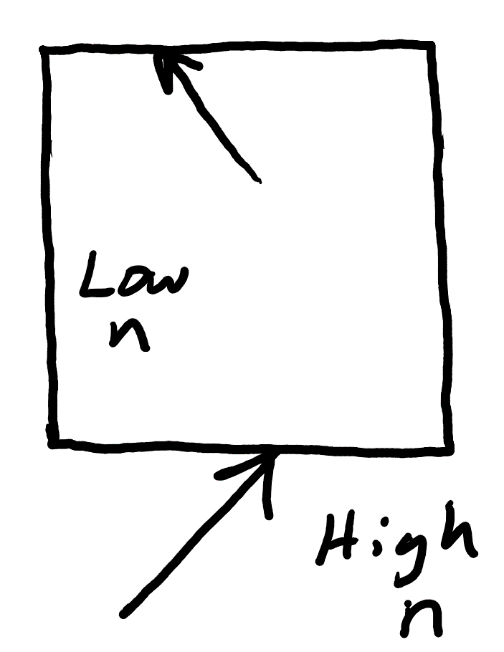 Low
n
High
n